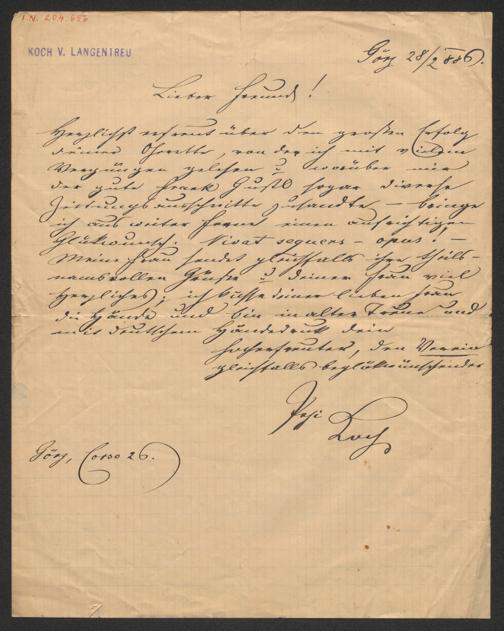 I.N. 204.656
KOCH V. LANGENTREU
Görz 28/2 886.
Lieber Freund!
Herzlichst erfreut über den großen Erfolg
deiner Operette, von der ich mit vielem
Vergnügen gelesen u worüber mir
der gute Frank Gustl sogar diverse
Zeitungsausschnitte zusandte – bringe
ich aus weiter Ferne einen aufrichtigen
Glükwunsch. Vivat sequens – opus! –
Meine Frau sendet gleichfalls ihre theil-
namsvollen Grüße u deiner Frau viel
Herzliches; ich küsse deiner lieben Frau
die Hände und bin in alter Treue und
mit deutschem Händedruk dein
hocherfreuter, den Verein
gleichfalls beglükwünschender
Pepi Koch
Görz, Corso 26.